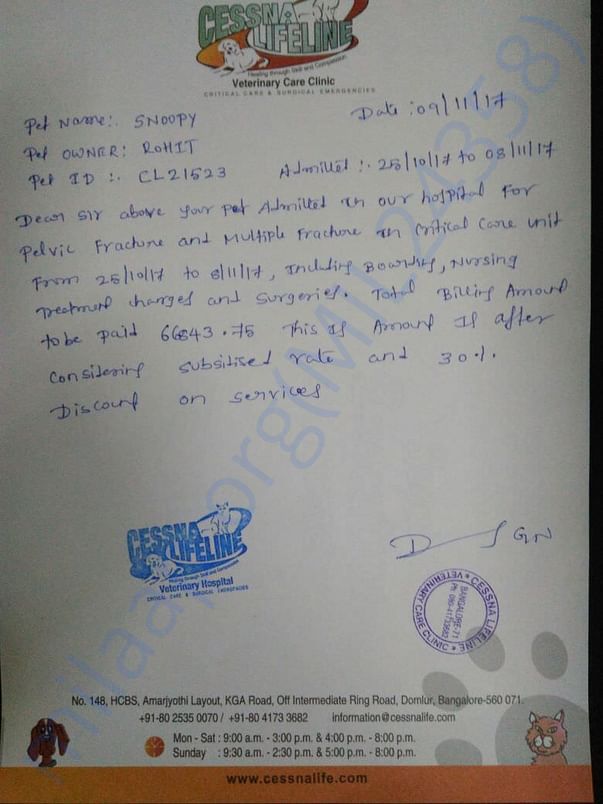 CESSNA
LIFELINE
Healing through Skill and Compassion
Veterinary Care Clinic
CRITICAL CARE & SURGICAL EMERGENCIES
Date :09/11/17
Pet Name:. SNOOPY
Pet OWNER: ROHIT
Pet ID :. CL21523 Admitted :. 25/10/17 to 08/11/17
Dear Sir above your Pet Admitted in our hospital For
Pelvic Fracture and Multiple Fracture in Critical Care unit
From 25/10/17 to 8/11/17, Including Boarding, Nursing
Treatment charges and Surgeries. Total Billing Amount
to be paid 66843.75 This Is Amount Is after
Considering Subsitised rate and 30%.
Discount on services
CESSNA
LIFELINE
Healing through Skill and Compassion
Veterinary Hospital
CRITICAL CARE & SURGICAL EMERGENCIES
GN
CESSNA LIFELINE
VETERINARY CARE CLINIC
BANGALORE-71
No. 148, HCBS, Amarjyothi Layout, KGA Road, Off Intermediate Ring Road, Domlur, Bangalore-560 071.
+91-80 2535 0070 / +91-80 4173 3682 information@cessnalife.com
Mon - Sat : 9:00 a.m. - 3:00 p.m. & 4:00 p.m. - 8:00 p.m.
Sunday : 9:30 a.m. - 2:30 p.m. & 5:00 p.m. - 8:00 p.m.
www.cessnalife.com
milaap.org(MIL.24358)